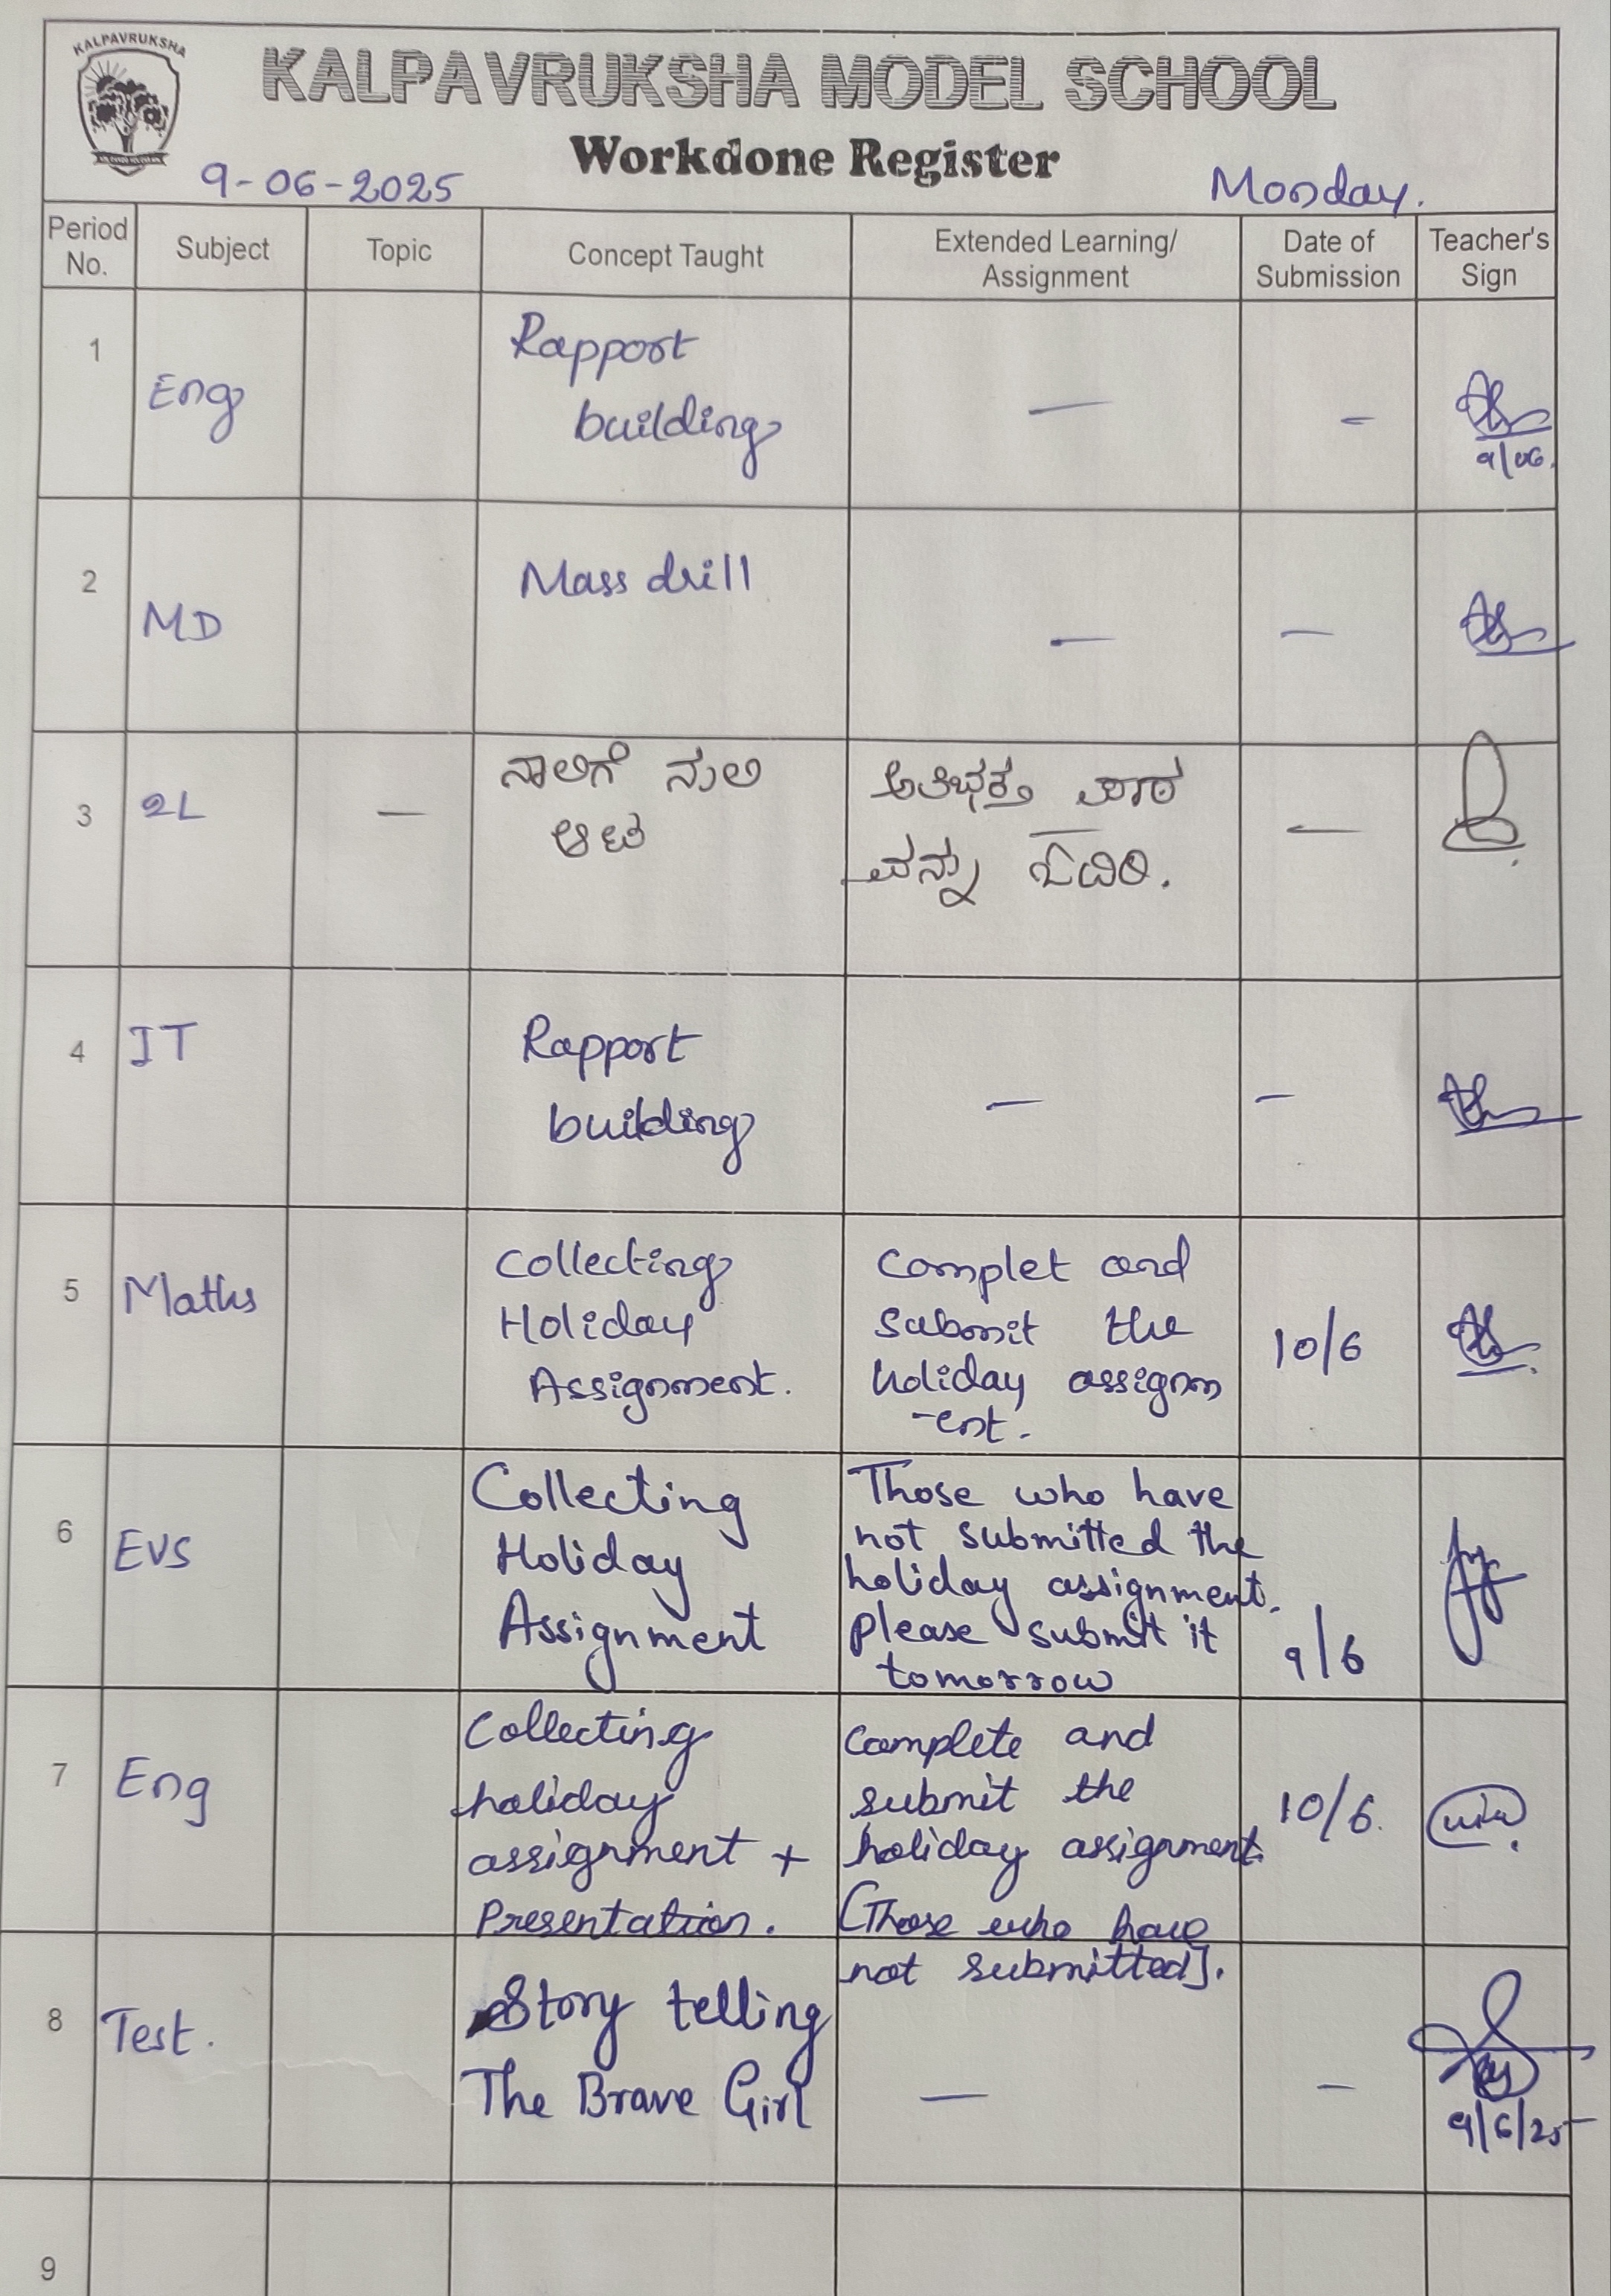 KALPAVRUKSHA
KALPAVRUKSHA MODEL SCHOOL
Workdone Register
9-06-2025 Monday.
Period No. Subject Topic Concept Taught Extended Learning/ Assignment Date of Submission Teacher's Sign
1 Eng Rapport — –
building
9/06.
2 MD Mass drill — —
3 2L — ನಾಲಿಗೆ ನುಲಿ ಅತಿಭಕ್ತ ಪಾಠ —
ಆಟ ವನ್ನು ಓದಿರಿ.
4 IT Rapport — –
building
5 Maths Collecting Complet and
Holiday Submit the 10/6
Assignment. holiday assignm
-ent.
6 EVS Collecting Those who have
Holiday not submitted the
Assignment holiday assignment.
please submit it 9/6
tomorrow
7 Eng Collecting Complete and
holiday submit the 10/6.
assignment + holiday assignment
Presentation. (Those who have
not submitted].
8 Test. Story telling
The Brave Girl — –
9/6/25
9